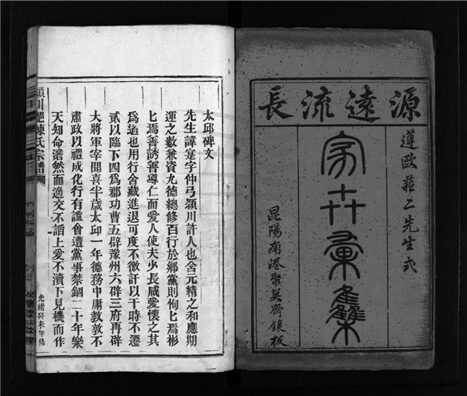 源遠流長
遵歐蘇二先生式
家乘彙集
昆陽南港聚英齋鐫板
太邱碑文
先生諱寔字仲弓潁川許人也含元精之和應期
運之數兼資九德總修百行於鄉黨則恂恂焉彬
彬焉善誘善導仁而愛人使夫少長咸愛懷之其
為道也用行舍藏進退可度不徼訐以干時不遷
貳以臨下四為郡功曹五辟豫州六辟三府再辟
大將軍宰聞喜半歲太邱一年德務中庸教敦不
肅政以禮成化行有謐會遭黨事禁錮二十年樂
天知命澹然而適交不諂上愛不瀆下見機而作
潁川郡陳氏宗譜
光緒癸未年修